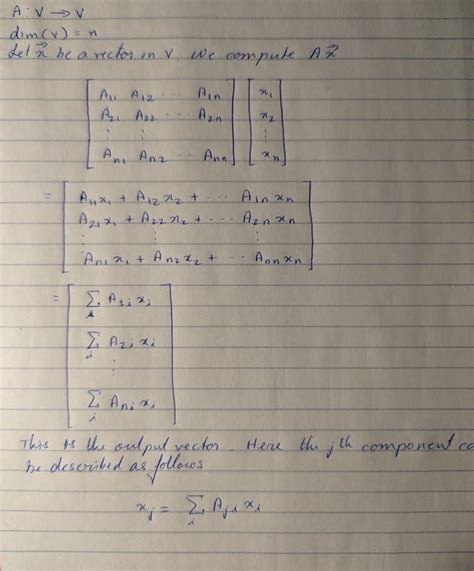 A : V → V
dim(V) = n
Let x⃗ be a vector in V. We compute A x⃗
[ A₁₁ A₁₂ ⋯ A₁ₙ ] [ x₁ ]
[ A₂₁ A₂₂ ⋯ A₂ₙ ] [ x₂ ]
[ ⋮ ⋮ ] [ ⋮ ]
[ Aₙ₁ Aₙ₂ ⋯ Aₙₙ ] [ xₙ ]
= [ A₁₁x₁ + A₁₂x₂ + ⋯ A₁ₙxₙ ]
[ A₂₁x₁ + A₂₂x₂ + ⋯ A₂ₙxₙ ]
[ ⋮ ⋮ ]
[ Aₙ₁x₁ + Aₙ₂x₂ + ⋯ Aₙₙxₙ ]
= [ ∑ᵢ A₁ᵢ xᵢ ]
[ ∑ᵢ A₂ᵢ xᵢ ]
[ ⋮ ]
[ ∑ᵢ Aₙᵢ xᵢ ]
This is the output vector. Here the jth component ca
be described as follows
xⱼ = ∑ᵢ Aⱼᵢ xᵢ